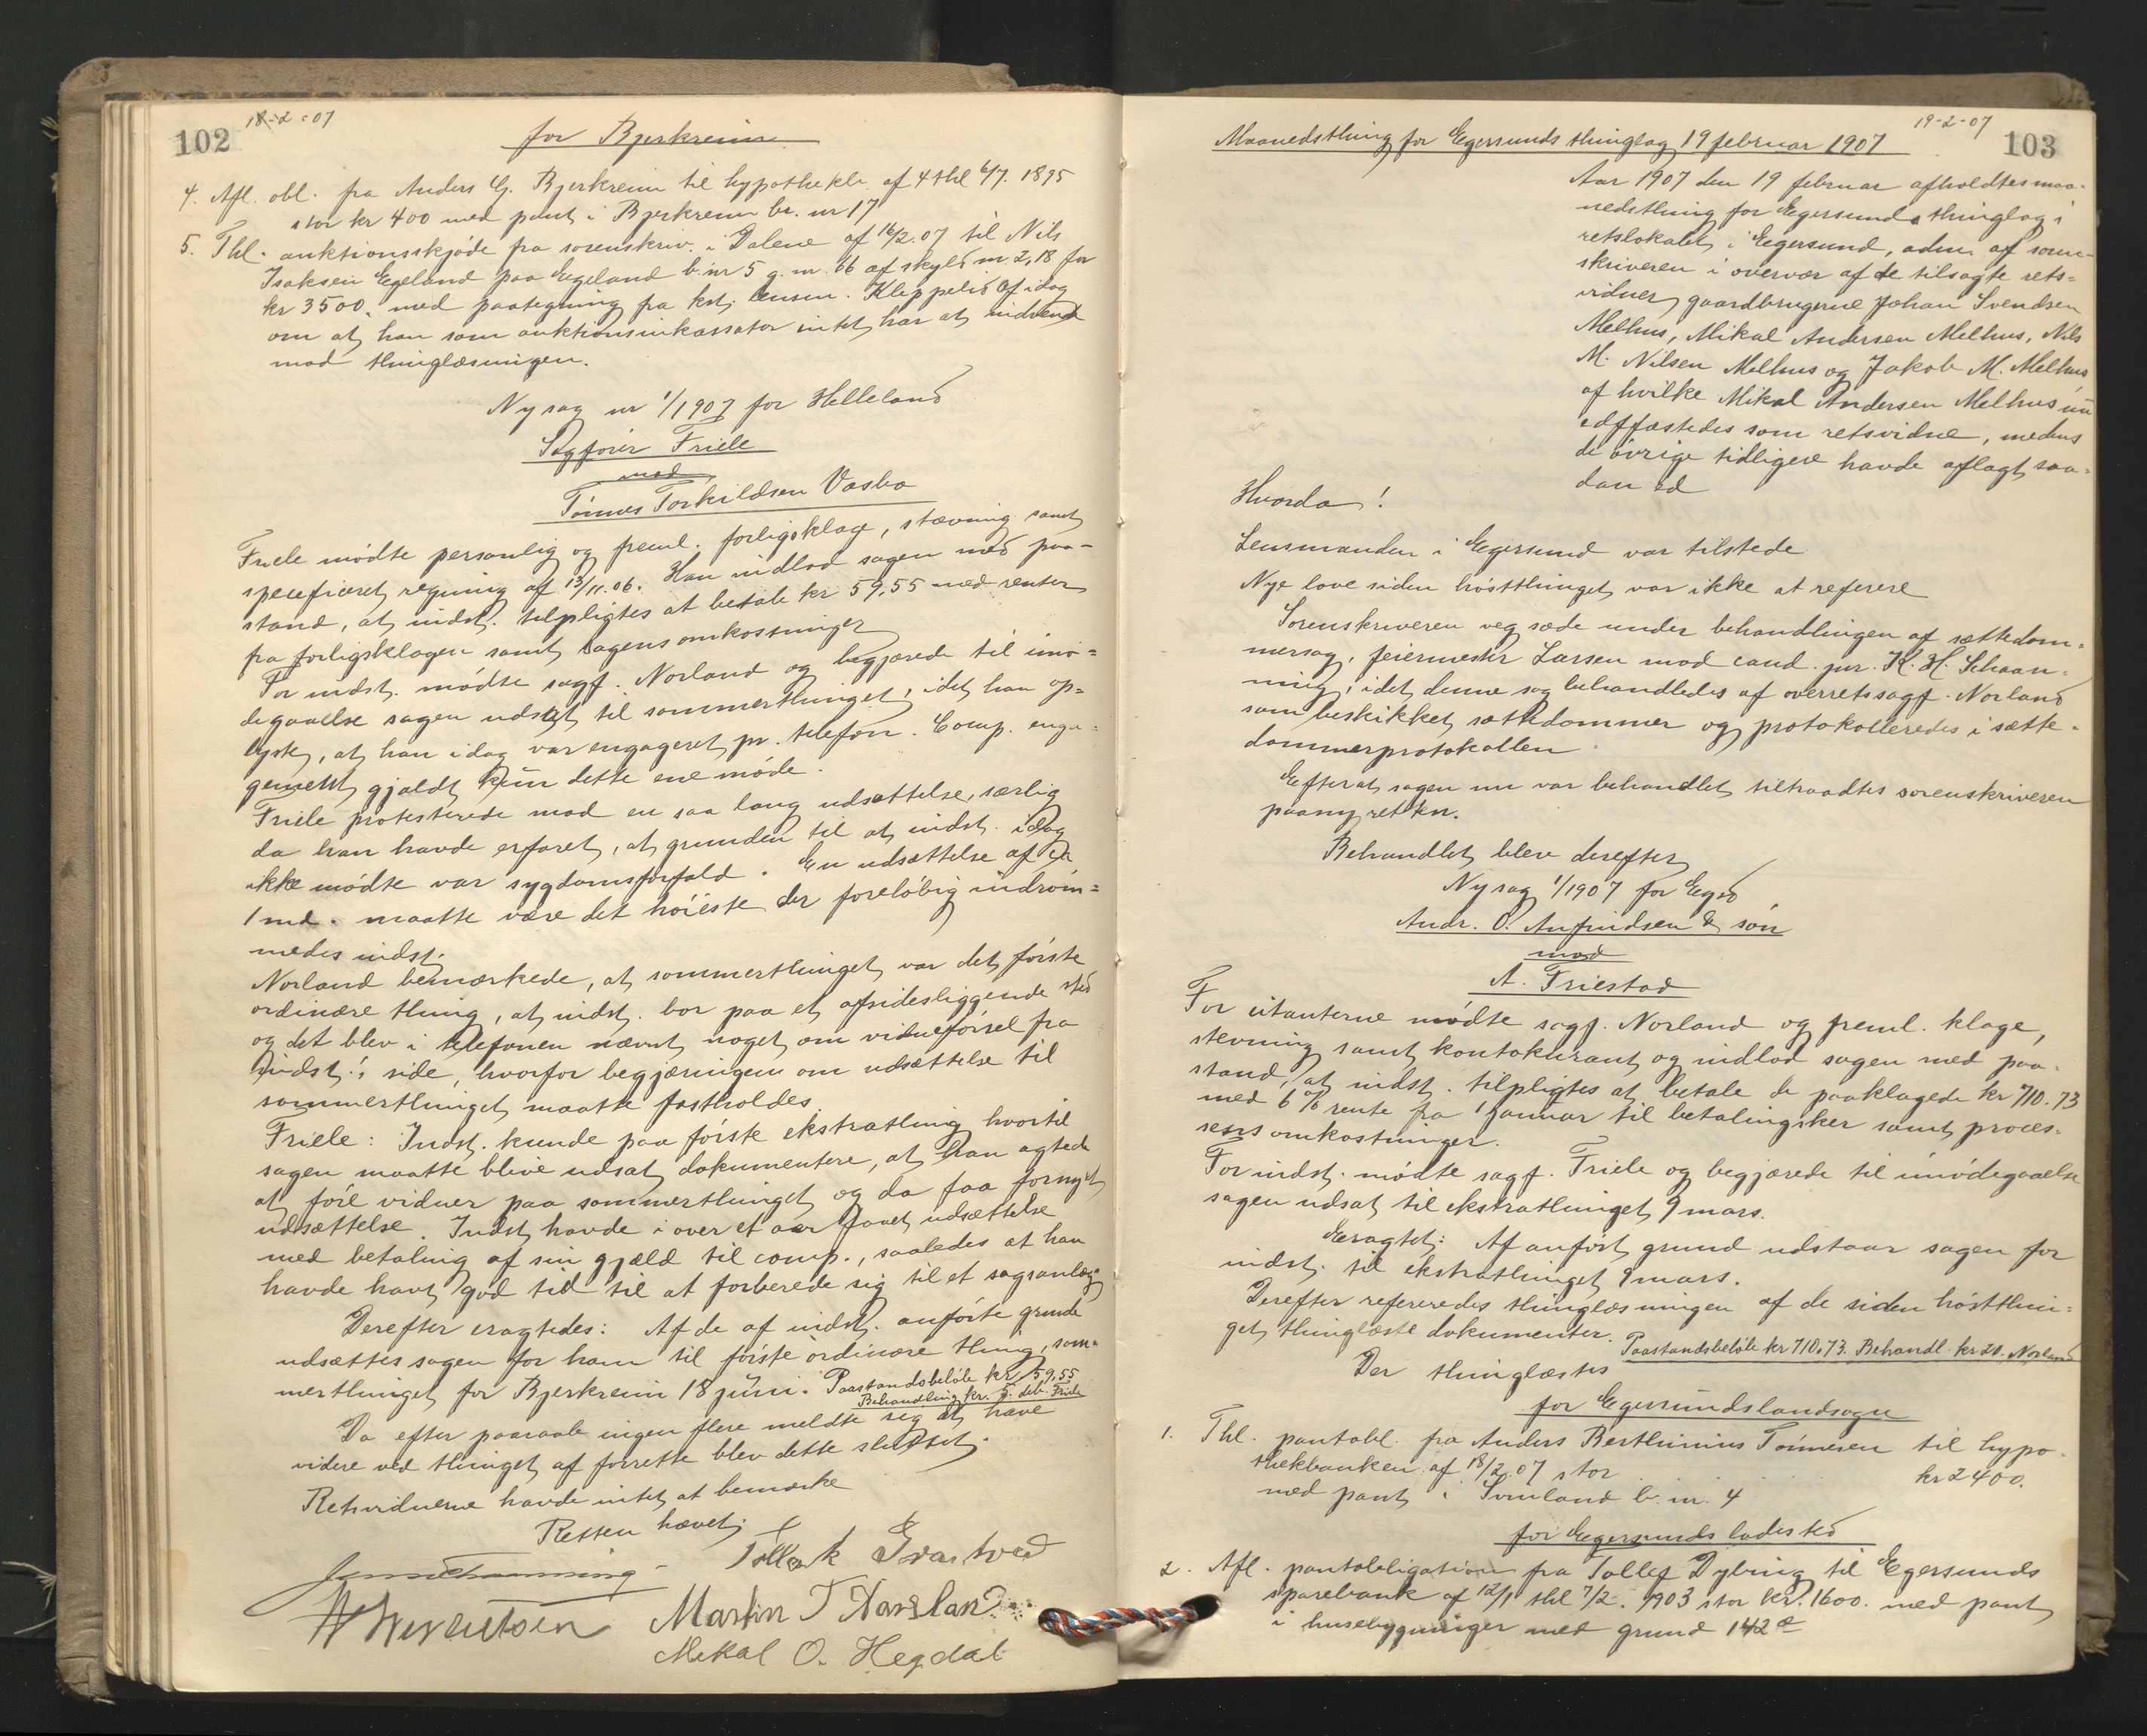 102
18-2-07
for Bjerkreim
4. Afl. obl. fra Anders G. Bjerkreim til hypothekb. af 4 thl 6/7. 1895
stor kr 400 med pant i Bjerkreim br. nr 17
5. Thl. auktionsskjøde fra sorenskriv. i Dalene af 16/2.07 til Nils
Isaksen Egeland paa Egeland b. nr 5 g. nr. 66 af skyld m. 2,18 for
kr 3500. med paategning fra kst. lensm. Kleppelid af idag
om at han som auktionsinkassator intet har at indvende
mod thinglæsningen.
Ny sag nr 1/1907 for Helleland
Sagfører Friele
mod
Tønnes Torkildsen Vasbø
Friele mødte personlig og freml. forligsklage, stævning samt
specificeret regning af 13/11.06. Han indlod sagen med paa-
stand, at indst. tilpligtes at betale kr 59,55 med renter
fra forligsklagen samt sagens omkostninger
For indst. mødte sagf. Norland og begjærede til imø=
degaaelse sagen udsat til sommerthinget, idet han op=
lyste, at han idag var engageret pr. telefon. Comp. enga=
gement gjaldt kun dette ene møde.
Friele protesterede mod en saa lang udsættelse, særlig
da han havde erfaret, at grunden til at indst. idag
ikke mødte var sygdomsforfald. En udsættelse af ca
1 md. maatte være det høieste der foreløbig indrøm=
medes indst.
Norland bemærkede, at sommerthinget var det første
ordinære thing, at indst. bor paa et afsidesliggende sted
og det blev i telefonen nævnt noget om vidneførsel fra
indst.s side, hvorfor begjæringen om udsættelse til
sommerthinget maatte fastholdes
Friele: Indst. kunde paa første ekstrathing hvortil
sagen maatte blive udsat dokumentere, at han agtede
at føre vidner paa sommerthinget og da faa fornyet
udsættelse. Indst. havde i over et aar faaet udsættelse
med betaling af sin gjæld til comp., saaledes at han
havde havt god tid til at forberede sig til et sagsanlæg
Derefter eragtedes: Af de af indst. anførte grunde
udsættes sagen for ham til første ordinære thing, som-
merthinget for Bjerkreim 18 juni. Paastandsbeløb kr 59,55
Behandling kr. 5. deb. Friele
Da efter paaraab ingen flere meldte sig at have
videre ved thinget af forrette blev dette sluttet.
Retsvidnerne havde intet at bemærke
Retten hævet.
Tollak Svartved
Martin T
Mikal O. Hegdal
19-2-07
103
Maanedsthing for Egersunds thinglag 19 februar 1907
Aar 1907 den 19 februar afholdtes maa-
nedsthing for Egersunds thinglag i
retslokalet i Egersund, adm. af soren-
skriveren i overvær af de tilsagte rets=
vidner, gaardbrugerne Johan Svendsen
Melhus, Mikal Andersen Melhus, Nils
M. Nilsen Melhus og Jakob M. Melhus,
af hvilke Mikal Andersen Melhus nu
edfæstedes som retsvidne, medens
de øvrige tidligere havde aflagt saa=
dan ed
Hvorda!
Lensmanden i Egersund var tilstede
Nye love siden høstthinget var ikke at referere
Sorenskriveren veg sæde under behandlingen af sættedom=
mersag, feiermester Larsen mod cand. jur. K. H. Schaan=
ning, idet denne sag behandledes af overretssagf. Norland
som beskikket sættedommer og protokolleredes i sætte-
dommerprotokollen
Efterat sagen nu var behandlet tiltraadtes sorenskriveren
paany retten.
Behandlet blev derefter
Ny sag 1/1907 for Egsd
Andr. O. Anfindsen & søn
mod
A. Friestad
For citanterne mødte sagf. Norland og freml. klage,
stevning samt kontokurant og indlod sagen med paa-
stand, at indst. tilpligtes at betale de paaklagede kr 710.73
med 6% rente fra 1 januar til betaling sker samt proces=
sens omkostninger.
For indst. mødte sagf. Friele og begjærede til imødegaaelse
sagen udsat til ekstrathinget 9 mars.
Eragtet: Af anført grund udstaar sagen for
indst. til ekstrathinget 9 mars.
Derefter refereredes thinglæsningen af de siden høstthin=
get thinglæste dokumenter. Paastandsbeløb kr 710,73. Behandl. kr 20. Norland
Der thinglæstes
for Egersundslandsogn
1. Thl. pantobl. fra Anders Berthinius Tønnesen til hypo-
thekbanken af 18/2.07 stor kr 2400.
med pant i Svinland b. nr. 4
for Egersunds ladested
2. Afl. pantobligation fra Tollef Dybing til Egersunds
sparebank af 12/1 thl 7/2. 1903 stor kr. 1600. med pant
i husebygninger med grund 142 a